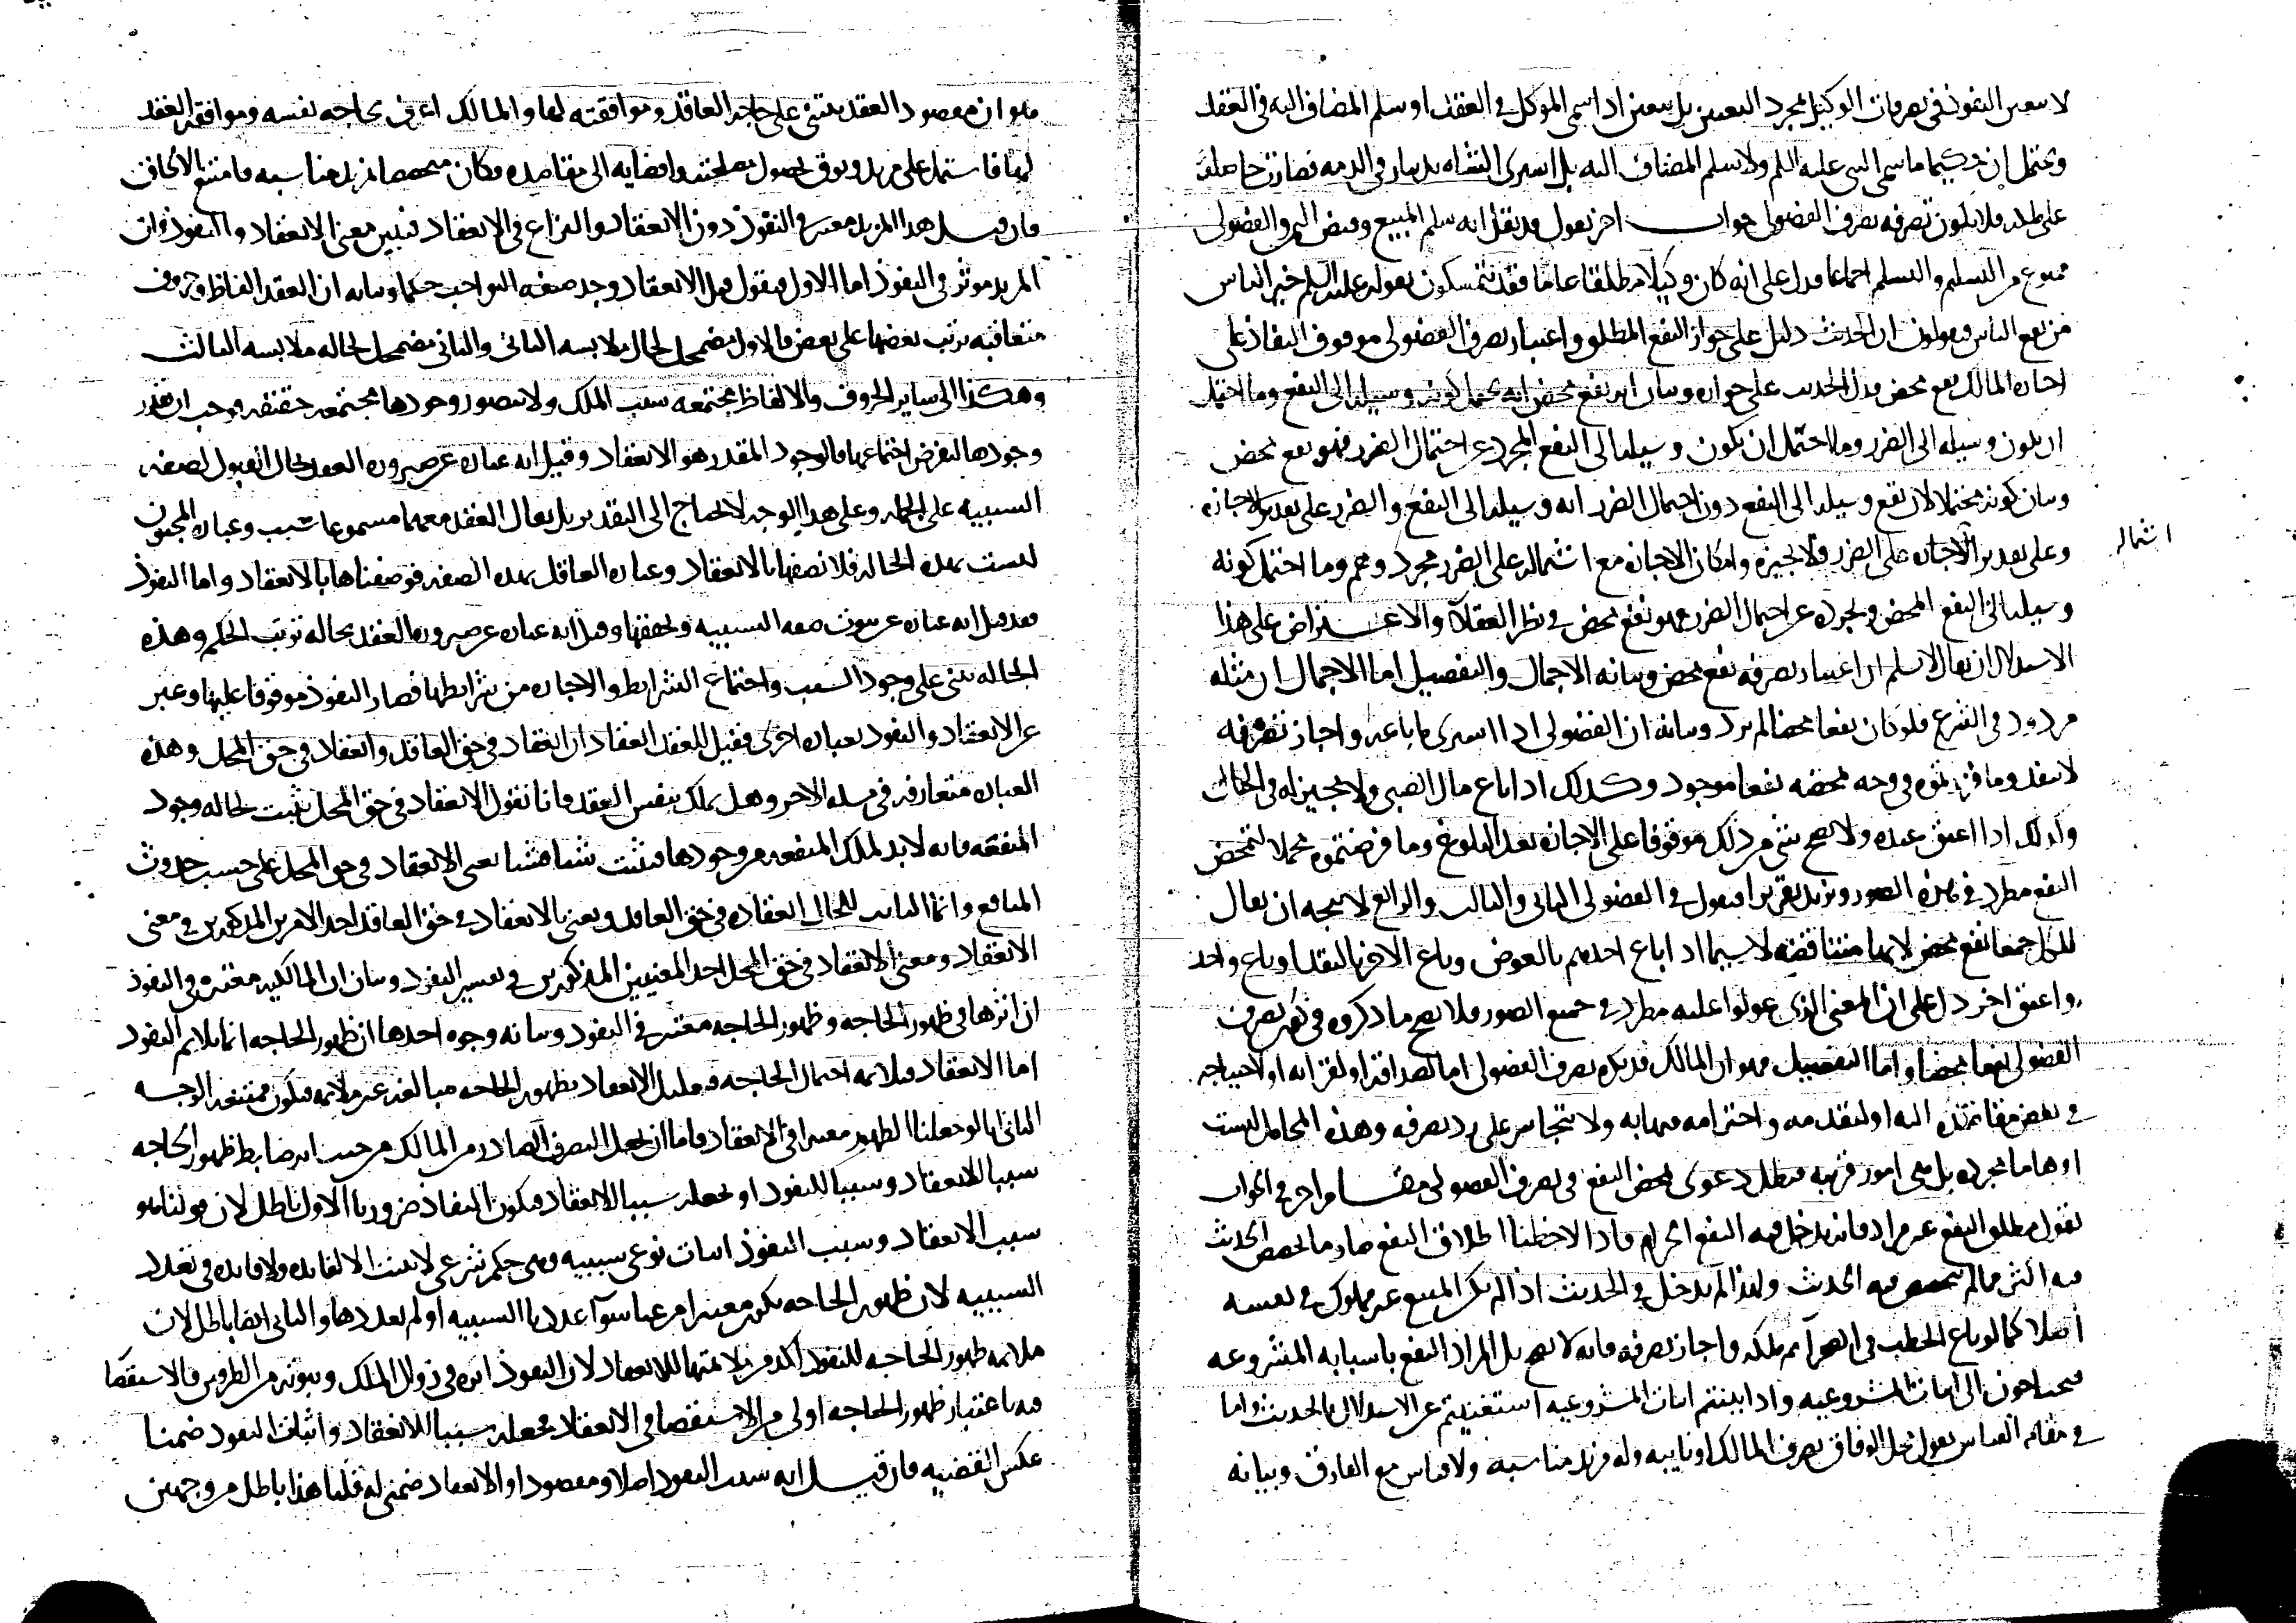 لا يتعين النفوذ في تصرفات الوكيل بمجرد التعيين بل يتعين اذا سمى الموكل في العقد او سلم المضاف اليه في العقد
ويحتمل ان حكيما ما سمى النبي عليه السلم ولا سلم المضاف اليه بل اشترى الشاه بدينار في الذمه فصارت حاصله
على ملكه فلا يكون تصرفه تصرف الفضولي جواب اخر نقول قد نقل انه سلم المبيع وقبض الثمن والفضولي
ممنوع من التسليم والتسلم اجماعا فدل على انه كان وكيلا مطلقا عاما فقد يتمسكون بقوله عليه السلم خير الناس
من نفع الناس ويقولون ان الحديث دليل على جواز النفع المطلق واعتبار تصرف الفضولي موقوف النفاذ على
اجازه المالك نفع محض فدل الحديث على جوازه وبيان انه نفع محض انه يحتمل كونه وسيله الى النفع وما احتمل
ان يكون وسيله الى الضرر وما احتمل ان يكون وسيله الى النفع المجرد عن احتمال الضرر فهو نفع محض
وبيان كونه محتملا لان يقع وسيله الى النفع دون احتمال الضرر انه وسيله الى النفع والضرر على تقدير الاجازه
وعلى تقدير الاجازه على الضرر فلا يجيزه وامكان الاجازه مع اشتماله على الضرر مجرد وهم وما احتمل كونه
اشتماله
وسيله الى النفع المحض وتجرده عن احتمال الضرر فهو نفع محض في نظر العقلا والاعتراض على هذا
الاستدلال ان يقال لا نسلم ان اعتبار تصرفه نفع محض وبيانه الاجمال والتفصيل اما الاجمال ان مثله
مردود في الشرع فلو كان نفعا محضا لم يرد وبيانه ان الفضولي اذا اشترى ما باعه واجاز تصرفه
لا ينفذ وما قررتموه في وجه تمحضه نفعا موجود وكذلك اذا باع مال الصبي ولا مجيز له في الحال
وكذلك اذا اعتق عبده ولا يصح شي من ذلك موقوفا على الاجازه بعد البلوغ وما فرضتموه محملا لتمحض
النفع مطرد في هذه الصور ونزيد تقريرا فنقول في الفضولي الثاني والثالث والرابع لا يتجه ان يقال
للكل جميعا نفع محض لانها متناقضه لا سيما اذا باع احدهم بالعوض وباع الاخر بالنقد او باع واحد
واعتق اخر دل على ان المعنى الذي عولوا عليه مطرد في جميع الصور فلا يصح ما ذكروه في كون تصرف
الفضولي نفعا محضا واما التفصيل فهو ان المالك قد يكره تصرف الفضولي اما لصداقته او لقرابته او لاحتياجه
في بعض مقاصده اليه او لتقدمه واحترامه فيهابه ولا يتجاسر على رد تصرفه وهذه المحامل ليست
اوهاما مجرده بل هي امور قريبه فبطل دعوى تمحض النفع في تصرف الفضولي مقام اخر في الجواب
نقول مطلق النفع غير مراد فانه يدخل فيه النفع الحرام فاذا لاحظنا اطلاق النفع صار ما يخصص الحديث
فيه اكثر مما لم يتخصص فيه الحديث ولهذا لم يدخل في الحديث اذا لم يكن المبيع غير مملوك في نفسه
اصلا كما لو باع الحطب في الصحرا ثم ملكه واجاز تصرفه فانه لا يصح بل المراد النفع باسبابه المشروعه
فيحتاجون الى اثبات المشروعيه واذا اثبتم اثبات المشروعيه استغنيتم عن الاستدلال بالحديث واما
في مقام القياس نقول محل الوفاق تصرف المالك او نايبه وله مزيد مناسبه ولا قياس مع الفارق وبيانه
هو ان مقصود العقد يبتنى على حاجه العاقد وموافقته لها والمالك اعرف بحاجه نفسه وموافقه العقد
لها فاشتمل على مزيد وثوق بحصول مصلحته وافضايه الى مقاصده فكان متخصصا بمزيد مناسبه فامتنع الالحاق
فان قيل هذا المزيد معتبر في النفوذ دون الانعقاد والنزاع في الانعقاد فنبين معنى الانعقاد والنفوذ وان
المزيد موثر في النفوذ اما الاول فنقول قيل الانعقاد وجود صفه التواجب حكما وبيانه ان العقد الفاظ وحروف
متعاقبه ترتب بعضها على بعض فالاول مضمحل لحال ملابسه الثاني والثاني مضمحل لحاله ملابسه الثالث
وهكذا الى ساير الحروف والالفاظ مجتمعه سبب الملك ولا يتصور وجودها مجتمعه حقيقه فوجب ان نقدر
وجودها لنفرض اجتماعها فالوجود المقدر هو الانعقاد وقيل انه عباره عن صيروره العقد بحال القبول لصفه
السببيه على الجمله وعلى هذا الوجه لا يحتاج الى التقدير بل يقال العقد معهما مسموعا سبب وعباره المجنون
ليست بهذه الحاله فلا نصفها بالانعقاد وعباره العاقل بهذه الصفه فوصفناها بالانعقاد واما النفوذ
فقد قيل انه عباره عن ثبوت صفه السببيه وتحققها وقيل انه عباره عن صيروره العقد بحاله ترتب الحكم وهذه
الحاله تبنى على وجود السبب واجتماع الشرايط والاجازه من شرايطها فصار النفوذ موقوفا عليها وعبر
عن الانعقاد والنفوذ بعباره اخرى فقيل للعقد انعقادان انعقاد في حق العاقد وانعقاد في حق المحل وهذه
العباره متعارفه في مسله الاجر وهل يملك بنفس العقد فانا نقول الانعقاد في حق المحل يثبت لحاله وجود
المنفعه فانه لا بد لملك المنفعه من وجودها فيثبت شيا فشيا نعنى الانعقاد في حق المحل على حسب حدوث
المنافع وانما الثابت للحال انعقاده في حق العاقد ونعني بالانعقاد في حق العاقد احد الامرين المذكورين في معنى
الانعقاد ومعنى الانعقاد في حق المحل احد المعنيين المذكورين في تفسير النفوذ وبيان ان المالكيه معتبره في النفوذ
ان اثرها في ظهور الحاجه وظهور الحاجه معتبر في النفوذ وبيانه وجوه احدها ان ظهور الحاجه انما يلايم النفوذ
اما الانعقاد فيلايمه احتمال الحاجه فتعليل الانعقاد بظهور الحاجه مبالغه غير ملايمه فيكون ممتنعه الوجه
الثاني انا لو جعلنا الظهور معتبرا في الانعقاد فاما ان نجعل التصرف الصادر من المالك من حيث انه ضابط ظهور الحاجه
سببا للانعقاد وسببا للنفوذ او نجعله سببا للانعقاد فيكون النفاذ ضروريا الاول باطل لان قولنا هو
سبب الانعقاد وسبب النفوذ اثبات نوعى سببيه وهى حكم شرعى لا يثبت الا لفايده ولا فايده في تعدد
السببيه لان ظهور الحاجه يكون معتبرا مرعيا سوآ عددنا السببيه او لم نعددها والثانى ايضا باطل لان
ملايمه ظهور الحاجه للنفوذ اكد من ملايمتها للانعقاد لان النفوذ اثره في زوال الملك وثبوته من الطرفين فالاستقصا
فيه باعتبار ظهور الحاجه اولى من الاستقصا في الانعقاد فجعله سببا للانعقاد واثبات النفوذ ضمنا
عكس القضيه فان قيل انه سبب النفوذ اصلا ومقصودا والانعقاد ضمني له قلنا هذا باطل من وجهين